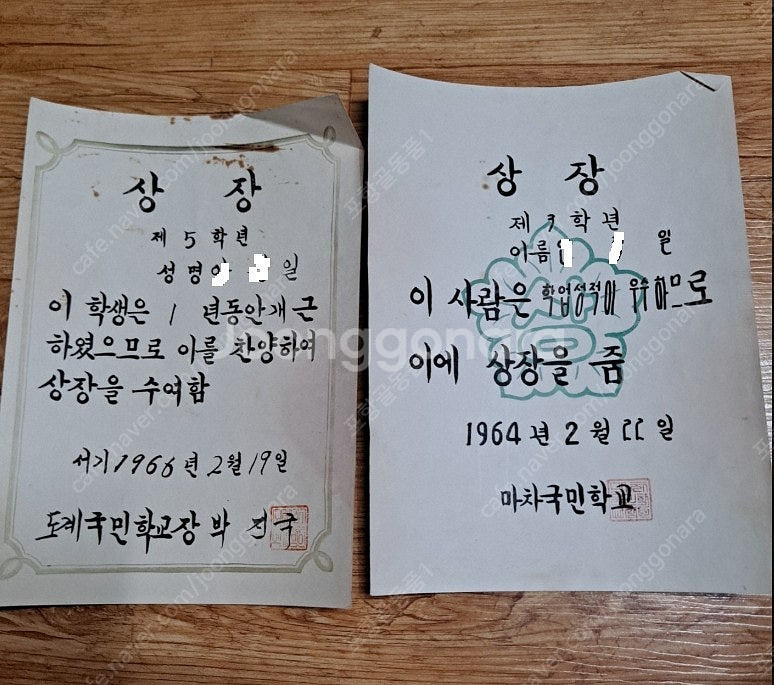 상 장
제 5 학년
성명 일
이 학생은 1 년동안개근
하였으므로 이를 찬양하여
상장을 수여함
서기 1966 년 2월 19일
도계국민학교장 박 전국
상 장
제 3 학년
이름 일
이 사람은 학업성적이 우수하므로
이에 상장을 줌
1964 년 2 월 22 일
마차국민학교
joonggonara
cafe.naver.com/joonggonara
포항골동품1